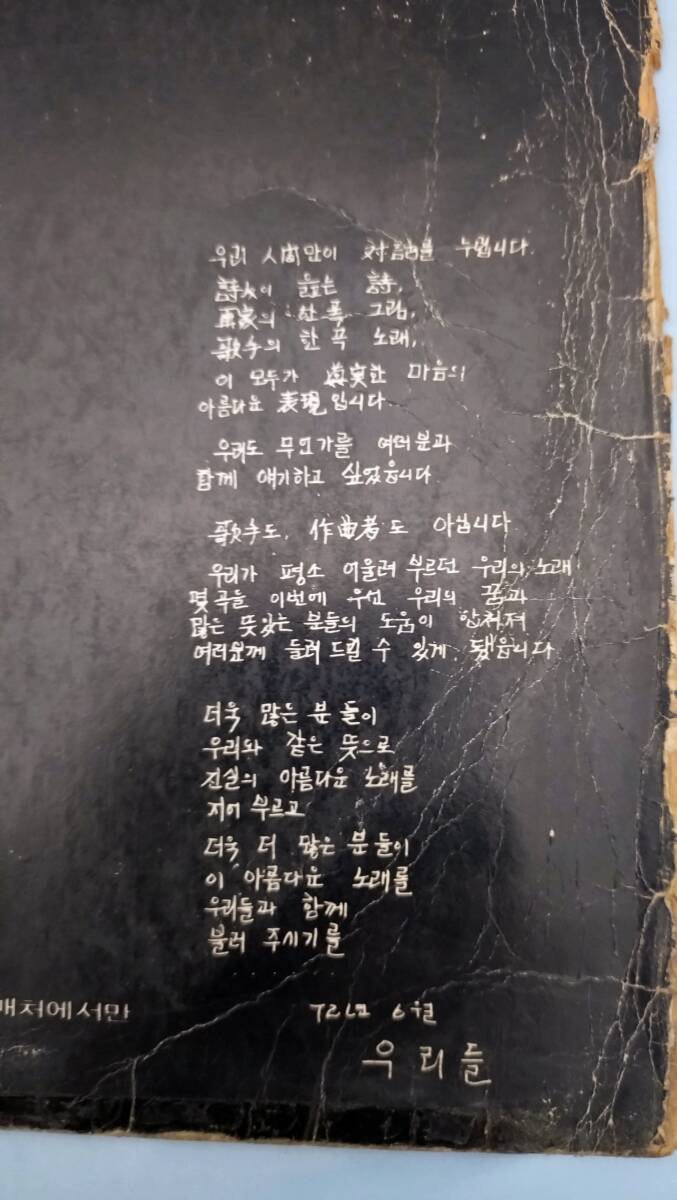 우리 人間만이 対話를 누립니다.
詩人이 읊는 詩,
画家의 한 폭 그림,
歌手의 한 곡 노래,
이 모두가 真実한 마음의
아름다운 表現입니다.
우리도 무언가를 여러분과
함께 얘기하고 싶었읍니다.
歌手도, 作曲者도 아닙니다.
우리가 평소 어울려 부르던 우리의 노래
몇 곡을 이번에 우선 우리의 꿈과
많은 뜻있는 분들의 도움이 합쳐져
여러분께 들려 드릴 수 있게 됐읍니다
더욱 많은 분들이
우리와 같은 뜻으로
진실의 아름다운 노래를
지어 부르고
더욱 더 많은 분들이
이 아름다운 노래를
우리들과 함께
불러 주시기를
매처에서만
72년 6월
우리들